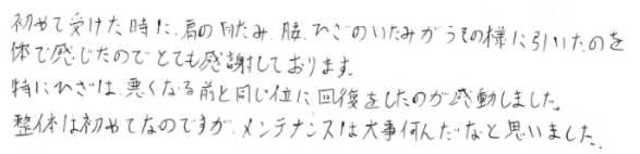 初めて受けた時に、肩のいたみ、腰、ひざのいたみがうその様に引いたのを
体で感じたのでとても感謝しております。
特にひざは、悪くなる前と同じ位に回復をしたのが感動しました。
整体は初めてなのですが、メンテナンスは大事何んだなと思いました。